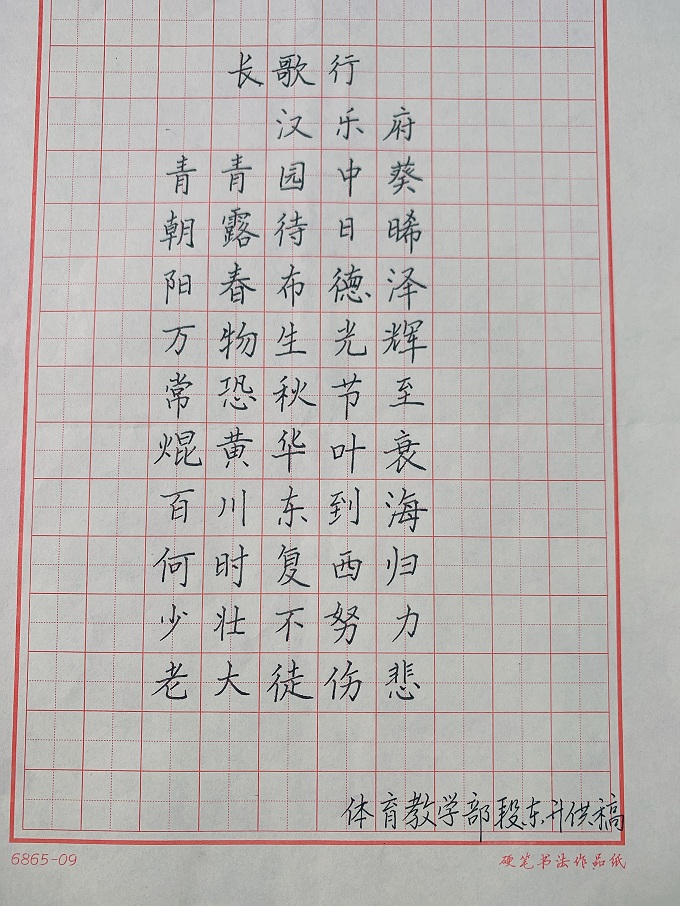 长歌行
汉乐府
青青园中葵
朝露待日晞
阳春布德泽
万物生光辉
常恐秋节至
焜黄华叶衰
百川东到海
何时复西归
少壮不努力
老大徒伤悲
体育教学部段东升供稿
6865-09
硬笔书法作品纸